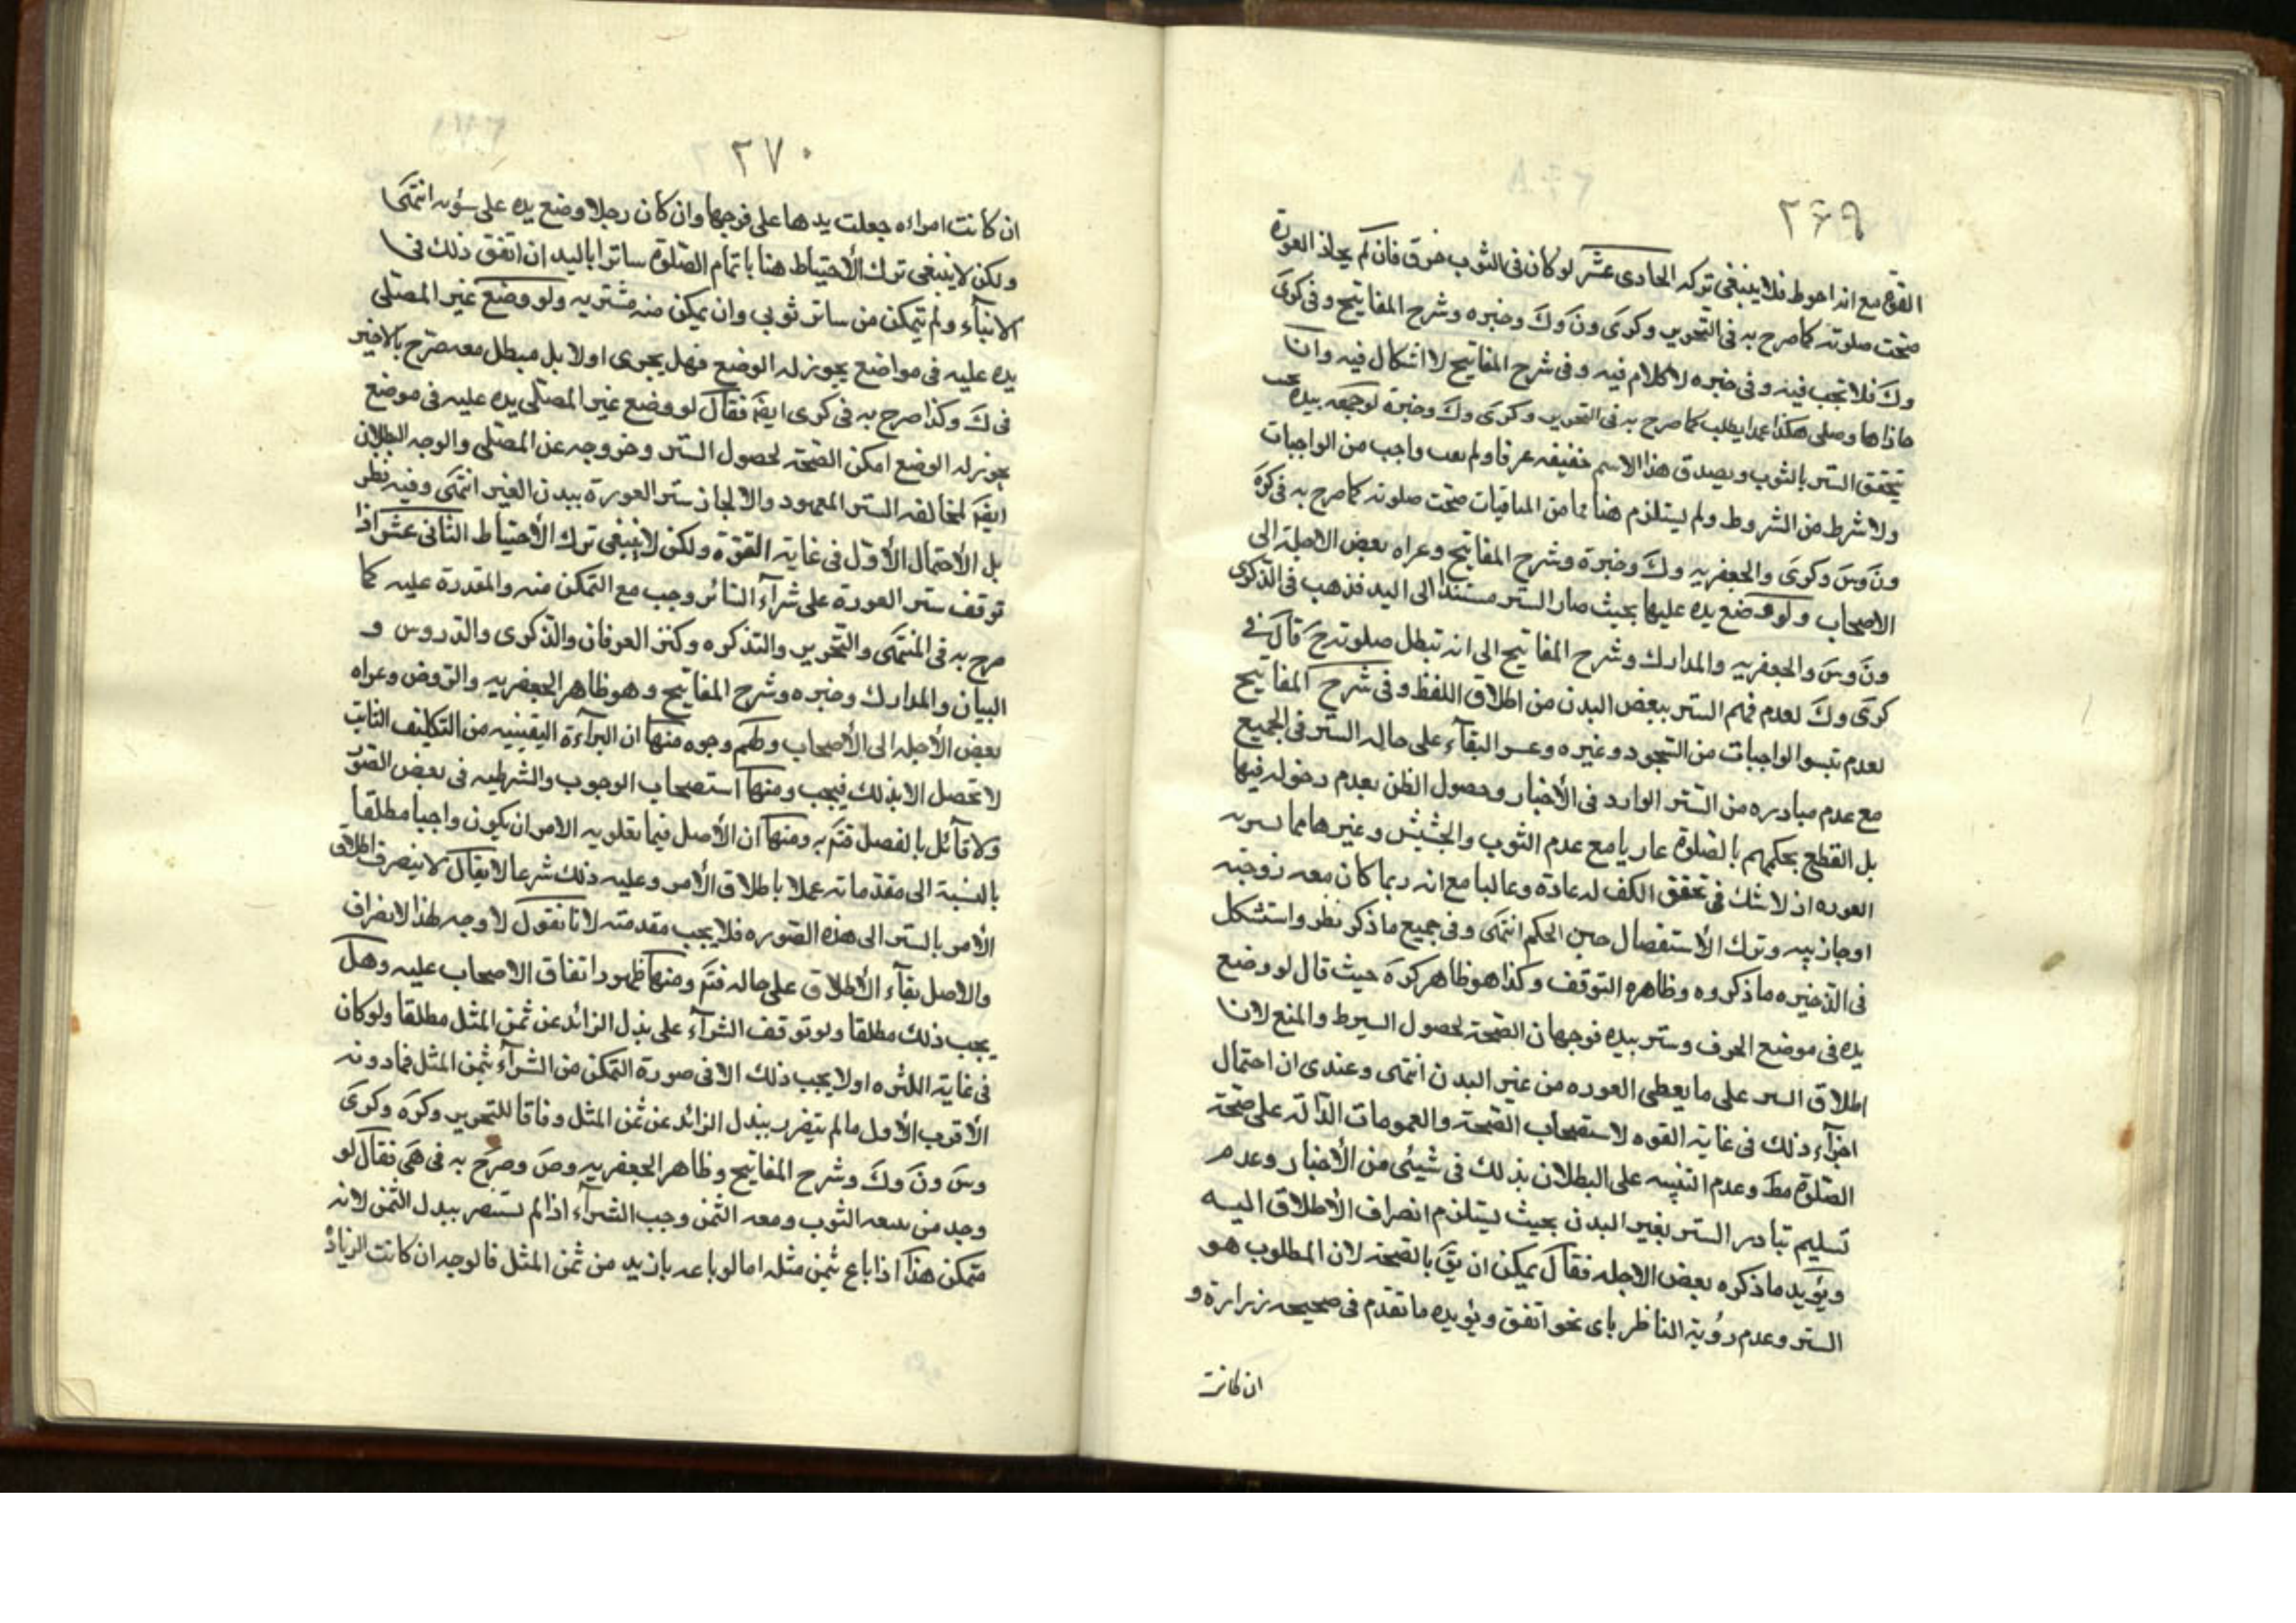 ٢٦٩
القوة مع انه احوط فلا ينبغى تركه الحادى عشر لو كان فى الثوب خرق فان لم يحاذ العورة
صحت صلوته كما صرح به فى التحرير وكرى ون وك وخيره وشرح المفاتيح وفى كرى
وك فلا تجب فيه وفى خيره لا كلام فيه وفى شرح المفاتيح لا اشكال فيه وان
حاذاها وصلى هكذا عمدا يطلب كما صرح به فى التحرير وكرى وك وخيرة لو جمعه بيده بحيث
يتحقق الستر بالثوب ويصدق هذا الاسم حقيقه عرفا ولم يعب واجب من الواجبات
ولا شرط من الشروط ولم يستلزم هناما من المنافيات صحت صلوته كما صرح به فى كره
ون وس وكرى والجعفريه وك وخيرة وشرح المفاتيح وعزاه بعض الاجلة الى
الاصحاب ولو وضع يده عليها بحيث صار الستر مستندا الى اليد فذهب فى الذكرى
ون وس والجعفريه والمدارك وشرح المفاتيح الى انه تبطل صلوته ح قال فى
كرى وك لعدم فهم الستر ببعض البدن من اطلاق اللفظ وفى شرح المفاتيح
لعدم تيسر الواجبات من السجود وغيره وعسر البقاء على حاله الستر فى الجميع
مع عدم مبادره من الستر الوارد فى الأخبار وحصول الظن بعدم دخوله فيها
بل القطع بحكمهم بالصلوة عاريا مع عدم الثوب والحشيش وغيرها مما يستر به
العوره اذ لا شك فى تحقق الكف له عادة وغالبا مع انه ربما كان معه زوجته
او جاريته وترك الأستفصال حين الحكم انتهى وفى جميع ما ذكر نظر واستشكل
فى الذخيره ما ذكروه وظاهره التوقف وكذا هو ظاهر كره حيث قال لو وضع
يده فى موضع الخرف وستر بيده فوجهان الصحة لحصول الشرط والمنع لان
اطلاق الستر على ما يغطى العوره من غير البدن انتهى وعندى ان احتمال
اجزاء ذلك فى غاية القوه لاستصحاب الصحة والعمومات الدالة على صحة
الصلوة مط وعدم التنبيه على البطلان بذلك فى شيئى من الأخبار وعدم
تسليم تبادر الستر بغير البدن بحيث يستلزم انصراف الأطلاق اليه
ويؤيد ما ذكره بعض الاجله فقال يمكن ان يق بالصحة لان المطلوب هو
الستر وعدم رؤية الناظر باى نحو اتفق ويؤيده ما تقدم فى صحيحه زرارة و
ان كانت
٢٧٠
ان كانت امراه جعلت يدها على فرجها وان كان رجلا وضع يده على سؤته انتهى
ولكن لا ينبغى ترك الأحتياط هنا باتمام الصلوة ساترا باليد ان اتفق ذلك فى
الاثناء ولم يتمكن من ساتر ثوبى وان يمكن منه مشتريه ولو وضع غير المصلى
يده عليه فى مواضع يجوز له الوضع فهل يجرى اولا بل مبطل معه صرح بالاخير
فى ك وكذا صرح به فى كرى ايضا فقال لو وضع غير المصلى يده عليه فى موضع
يجوز له الوضع امكن الصحة لحصول الستر وخروجه عن المصلى والوجه البطلان
ايضا لمخالفه الستر المعهود والا لجاز ستر العورة ببدن الغير انتهى وفيه نظر
بل الأحتمال الأول فى غاية القوة ولكن لا ينبغى ترك الأحتياط الثانى عشر اذا
توقف ستر العورة على شراء الساتر وجب مع التمكن منه والمقدرة عليه كما
صرح به فى المنتهى والتحرير والتذكره وكنز العرفان والذكرى والدروس و
البيان والمدارك وخيره وشرح المفاتيح وهو ظاهر الجعفريه والروض وعزاه
بعض الأجله الى الأصحاب ولهم وجوه منها ان البراءة اليقينيه من التكليف الثابت
لا تحصل الا بذلك فيجب ومنها استصحاب الوجوب والشرطيه فى بعض الصور
ولا قائل بالفصل فتم ومنها ان الأصل فيما تعلق به الامر ان يكون واجبا مطلقا
بالنسبة الى مقدماته عملا باطلاق الأمر وعليه ذلك شرعا لا يقال لا ينصرف اطلاق
الأمر بالستر الى هذه الصوره فلا يجب مقدمته لانا نقول لا وجه لهذا الانصراف
والاصل بقاء الأطلاق على حاله فتم ومنها ظهور اتفاق الاصحاب عليه وهل
يجب ذلك مطلقا ولو توقف الشراء على بذل الزائد عن ثمن المثل مطلقا ولو كان
فى غاية الكثره او لا يجب ذلك الا فى صورة التمكن من الشراء بثمن المثل فما دونه
الأقرب الأول ما لم يتضرر ببذل الزائد عن ثمن المثل وفاقا للتحرير وكره وكرى
وس ون وك وشرح المفاتيح وظاهر الجعفريه وض وصرح به فى هى فقال لو
وجد من يبيعه الثوب ومعه الثمن وجب الشراء اذا لم يستضر ببدل الثمن لانه
متمكن هذا اذا باع بثمن مثله اما لو باعه بازيد من ثمن المثل فالوجه ان كانت الزياده